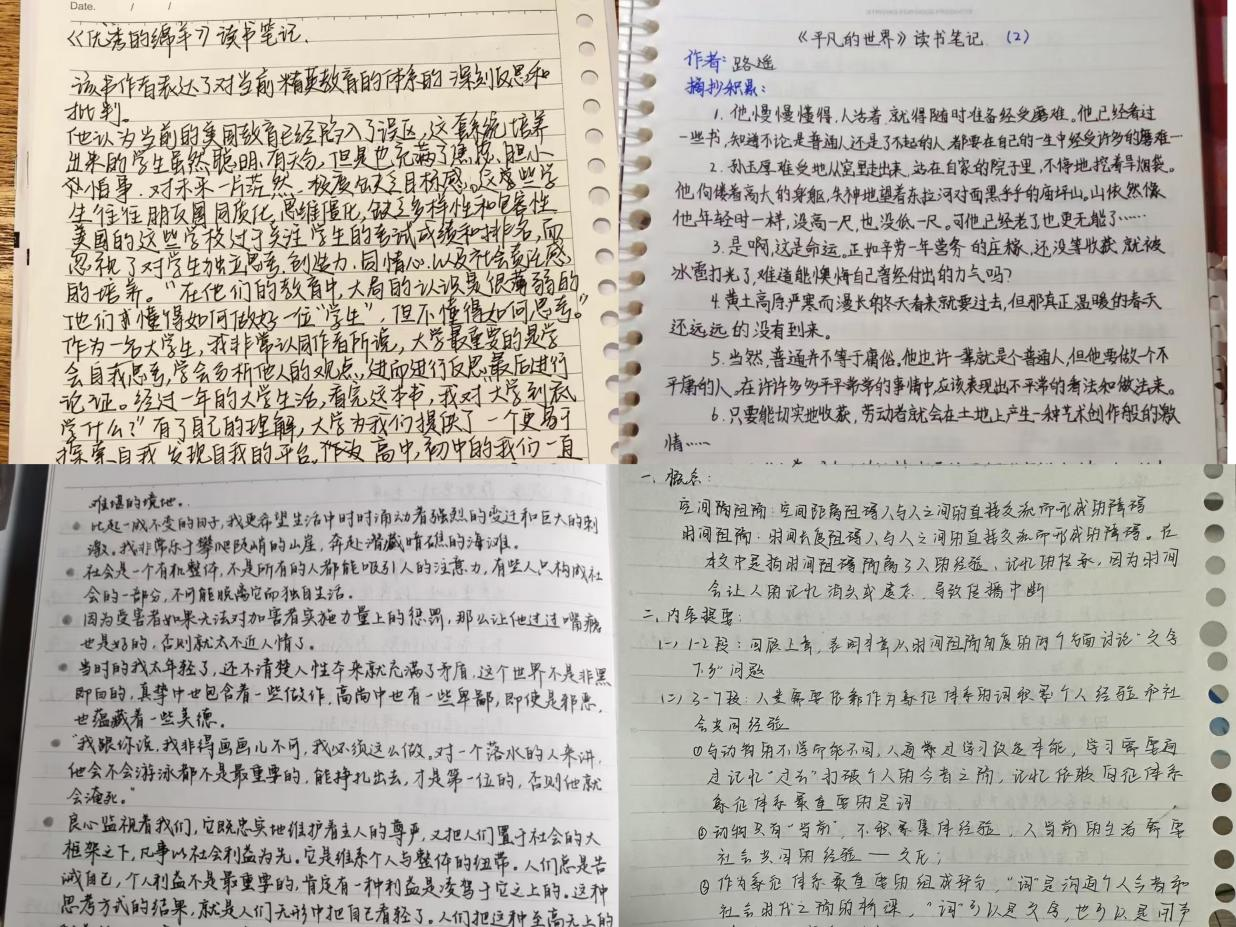 Date. / /
《优秀的绵羊》读书笔记.
该书作者表达了对当前精英教育的体系的深刻反思和
批判。
他认为当前的美国教育已经陷入了误区,这套系统培养
出来的学生虽然聪明,有天分,但是也充满了焦虑、胆小
怕事、对未来一片茫然、极度缺乏目标感。这些学
生往往朋友圈同质化,思维僵化,缺乏多样性和包容性
美国的这些学校过于关注学生的考试成绩和排名,而
忽视了对学生独立思考、创造力、同情心、以及社会责任感
的培养。“在他们的教育中,大局的认识是很薄弱的
他们才懂得如何做好一位“学生”,但不懂得如何思考。”
作为一名大学生,我非常认同作者所说,大学最重要的是学
会自我思考,学会分析他人的观点,进而进行反思最后进行
论证。经过一年的大学生活,看完这本书,我对大学到底
学什么?”有了自己的理解,大学为我们提供了一个更易于
探索自我、发现自我的平台。作为高中,初中的我们一直
《平凡的世界》读书笔记 (2)
作者:路遥
摘抄积累:
1. 他慢慢懂得,人活着,就得随时准备经受磨难。他已经看过
一些书,知道不论是普通人还是了不起的人,都要在自己的一生中经受许多的磨难…
2. 孙玉厚难受地从窑里走出来,站在自家的院子里,不停地挖着旱烟袋。
他佝偻着高大的身躯,失神地望着东拉河对面黑乎乎的庙坪山。山依然像
他年轻时一样,没高一尺,也没低一尺。可他已经老了也更无能了……
3. 是啊,这是命运。正如辛劳一年营务的庄稼,还没等收获就被
冰雹打光了,难道能懊悔自己曾经付出的力气吗?
4. 黄土高原严寒而漫长的冬天看来就要过去,但那真正温暖的春天
还远远的没有到来。
5. 当然,普通并不等于庸俗。他也许一辈就是个普通人,但他要做一个不
平庸的人。在许许多多平平常常的事情中,应该表现出不平常的看法和做法来。
6. 只要能切实地收获,劳动者就会在土地上产生一种艺术创作般的激
情……
难堪的境地。
比起一成不变的日子,我更希望生活中时时涌动着强烈的变迁和巨大的刺
激。我非常乐于攀爬陡峭的山崖,奔赴潜藏暗礁的海滩。
社会是一个有机整体,不是所有的人都能吸引人的注意力,有些人只构成社
会的一部分,不可能脱离它而独自生活。
因为受害者如果无法对加害者实施力量上的惩罚,那么让他过过嘴瘾
也是好的,否则就太不近人情了。
当时的我太年轻了,还不清楚人性本来就充满了矛盾,这个世界不是非黑
即白的,真挚中也包含着一些做作,高尚中也有一些卑鄙,即使是邪恶,
也蕴藏着一些美德。
“我跟你说,我非得画画儿不可,我必须这么做。对一个落水的人来讲,
他会不会游泳都不是最重要的,能挣扎出去,才是第一位的,否则他就
会淹死。”
良心监视着我们,它既忠实地维护着主人的尊严,又把人们置于社会的大
框架之下,凡事以社会利益为先。它是维系个人与整体的纽带。人们总是告
诫自己,个人利益不是最重要的,肯定有一种利益是凌驾于它之上的。这种
思考方式的结果,就是人们无形中把自己看轻了。人们把这种至高无上的
一、概念:
空间阻隔:空间距离阻碍人与人之间的直接交流所形成的障碍
时间阻隔:时间长度阻碍人与人之间的直接交流所形成的障碍。在
本文中是指时间阻碍隔离了人的经验、记忆的传承,因为时间
会让人的记忆消失或遗忘,导致传播中断
二、内容提要:
(一) 1-2段:回顾上章,表明本章从时间阻隔角度的两个方面讨论“文字
下乡”问题
(二) 3-7段:人类需要依赖作为象征体系的词积累个人经验和社
会共同经验
①与动物的不学而能不同,人通常过学习改造本能,学习需要通
过记忆“过去”打破个人的今昔之隔,记忆依赖象征体系
象征体系最重要的是词
②动物只有“当前”,不积累集体经验,人当前的生活需要
社会共同的经验——文化;
③作为象征体系最重要的组成部分,“词”是沟通个人今昔和
社会时代之隔的桥梁,“词”可以是文字,也可以是用声